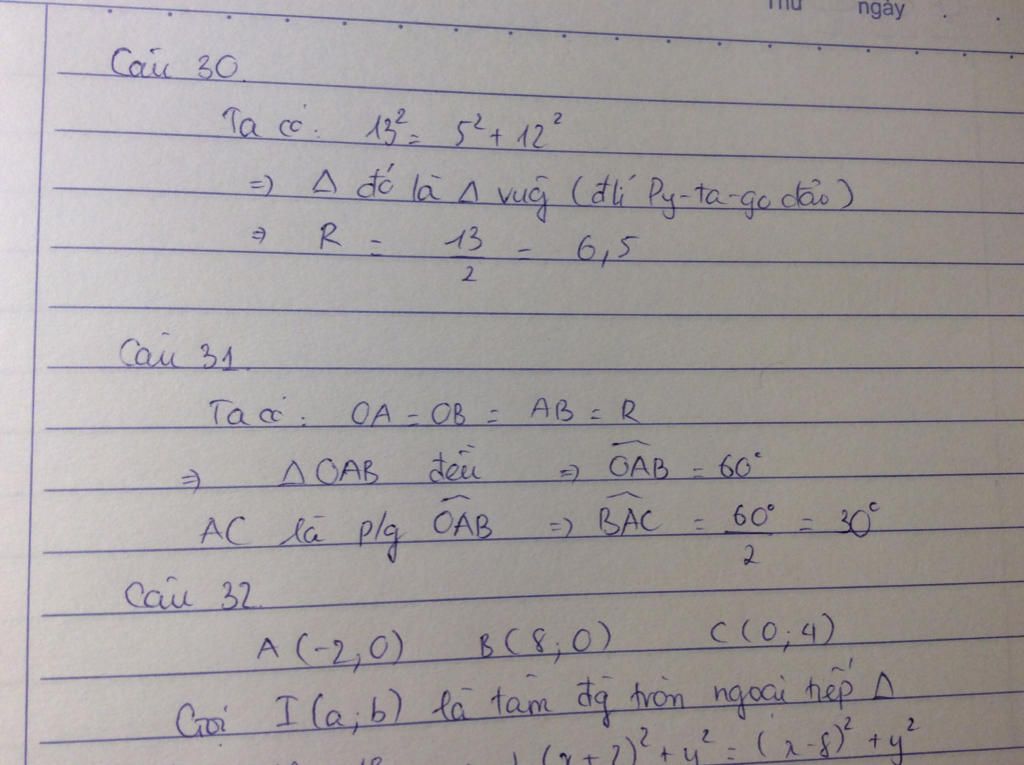 Thứ ngày
Câu 30.
Ta có: 13² = 5² + 12²
=> Δ đó là Δ vug̃ (đlí Py-ta-go đảo)
=> R = 13/2 = 6,5
Câu 31.
Ta có: OA = OB = AB = R
=> ΔOAB đều => \widehat{OAB} = 60°
AC là p/g \widehat{OAB} => \widehat{BAC} = 60°/2 = 30°
Câu 32.
A(-2;0) B(8;0) C(0;4)
Gọi I(a;b) là tâm đg̃ tròn ngoại tiếp Δ
(x+2)² + y² = (x-8)² + y²